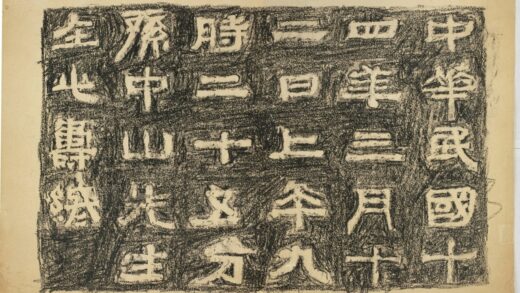 中華民國十
四年三月十
二日上午九
時二十五分
孫中山先生
在此壽終